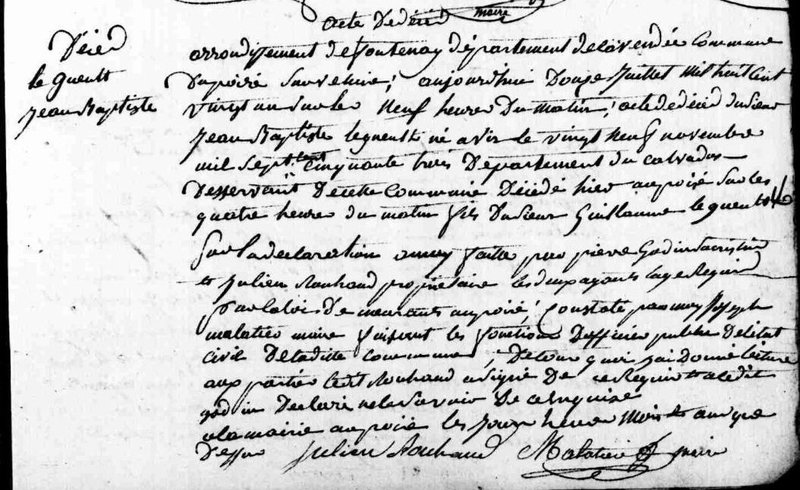 maire
acte de décéd
Décéd
le gueult
jean Baptiste
arrondissement de fontenay département de la vendée commune
Du poiré sur veluire ; aujourdhui Douze juillet mil huit cent
vingt un sur les neuf heure Du matin ; acte de décéd du sieur
jean Baptiste legueult né a vire le vingt neuf novembre
mil sept cent cinquante trois Département du calvados
Desservant De cette commune Décédé hier au poiré sur les
quatre heure du matin fils Du sieur Guillaume le gueult
sur la declaration a moy faitte par pierre Godin sacristin
et julien Rouhaud propriétaire les deux ayants l'age Requi
par la loi De meurants au poiré ; Constaté par moy joseph
malatier maire faisant les fonctions D'officier public De l'état
civil De la dite commune ; De tour quoi j'ai Donné lecture
aux partier le dit Rouhaud a signé De ce Requis et le dit
godin Declaré ne le savoir De ce enquise
a la mairie au poiré les jour heure mois et an que
Dessu julien Rouhaud Malatier maire